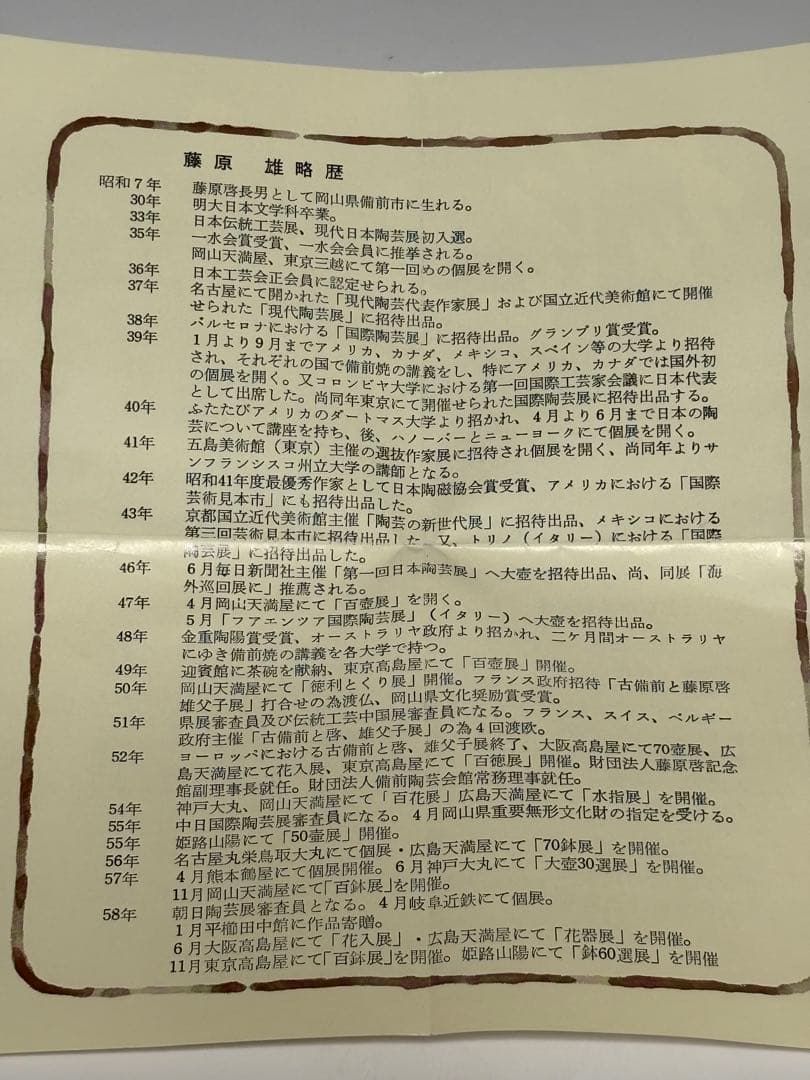 藤原 雄略歴
昭和7年 藤原啓長男として岡山県備前市に生れる。
30年 明大日本文学科卒業。
33年 日本伝統工芸展、現代日本陶芸展初入選。
35年 一水会賞受賞、一水会会員に推挙される。
岡山天満屋、東京三越にて第一回めの個展を開く。
36年 日本工芸会正会員に認定せられる。
37年 名古屋にて開かれた「現代陶芸代表作家展」および国立近代美術館にて開催
せられた「現代陶芸展」に招待出品。
38年 バルセロナにおける「国際陶芸展」に招待出品。グランプリ賞受賞。
39年 1月より9月までアメリカ、カナダ、メキシコ、スペイン等の大学より招待
され、それぞれの国で備前焼の講義をし、特にアメリカ、カナダでは国外初
の個展を開く。又コロンビヤ大学における第一回国際工芸家会議に日本代表
として出席した。尚同年東京にて開催せられた国際陶芸展に招待出品する。
40年 ふたたびアメリカのダートマス大学より招かれ、4月より6月まで日本の陶
芸について講座を持ち、後、ハノーバーとニューヨークにて個展を開く。
41年 五島美術館（東京）主催の選抜作家展に招待され個展を開く、尚同年よりサ
ンフランシスコ州立大学の講師となる。
42年 昭和41年度最優秀作家として日本陶磁協会賞受賞、アメリカにおける「国際
芸術見本市」にも招待出品した。
43年 京都国立近代美術館主催「陶芸の新世代展」に招待出品、メキシコにおける
第三回芸術見本市に招待出品した。又、トリノ（イタリー）における「国際
陶芸展」に招待出品した。
46年 6月毎日新聞社主催「第一回日本陶芸展」へ大壺を招待出品、尚、同展「海
外巡回展に」推薦される。
47年 4月岡山天満屋にて「百壺展」を開く。
5月「フアエンツア国際陶芸展」（イタリー）へ大壺を招待出品。
48年 金重陶陽賞受賞、オーストラリヤ政府より招かれ、二ケ月間オーストラリヤ
にゆき備前焼の講義を各大学で持つ。
49年 迎賓館に茶碗を献納、東京高島屋にて「百壺展」開催。
50年 岡山天満屋にて「徳利とくり展」開催。フランス政府招待「古備前と藤原啓
雄父子展」打合せの為渡仏、岡山県文化奨励賞受賞。
51年 県展審査員及び伝統工芸中国展審査員になる。フランス、スイス、ベルギー
政府主催「古備前と啓、雄父子展」の為4回渡欧。
52年 ヨーロッパにおける古備前と啓、雄父子展終了、大阪高島屋にて70壺展、広
島天満屋にて花入展、東京高島屋にて「百徳展」開催。財団法人藤原啓記念
館副理事長就任。財団法人備前陶芸会館常務理事就任。
54年 神戸大丸、岡山天満屋にて「百花展」広島天満屋にて「水指展」を開催。
55年 中日国際陶芸展審査員になる。4月岡山県重要無形文化財の指定を受ける。
55年 姫路山陽にて「50壺展」開催。
56年 名古屋丸栄鳥取大丸にて個展・広島天満屋にて「70鉢展」を開催。
57年 4月熊本鶴屋にて個展開催。6月神戸大丸にて「大壺30選展」を開催。
11月岡山天満屋にて「百鉢展」を開催。
58年 朝日陶芸展審査員となる。4月岐阜近鉄にて個展。
1月平櫛田中館に作品寄贈。
6月大阪高島屋にて「花入展」・広島天満屋にて「花器展」を開催。
11月東京高島屋にて「百鉢展」を開催。姫路山陽にて「鉢60選展」を開催